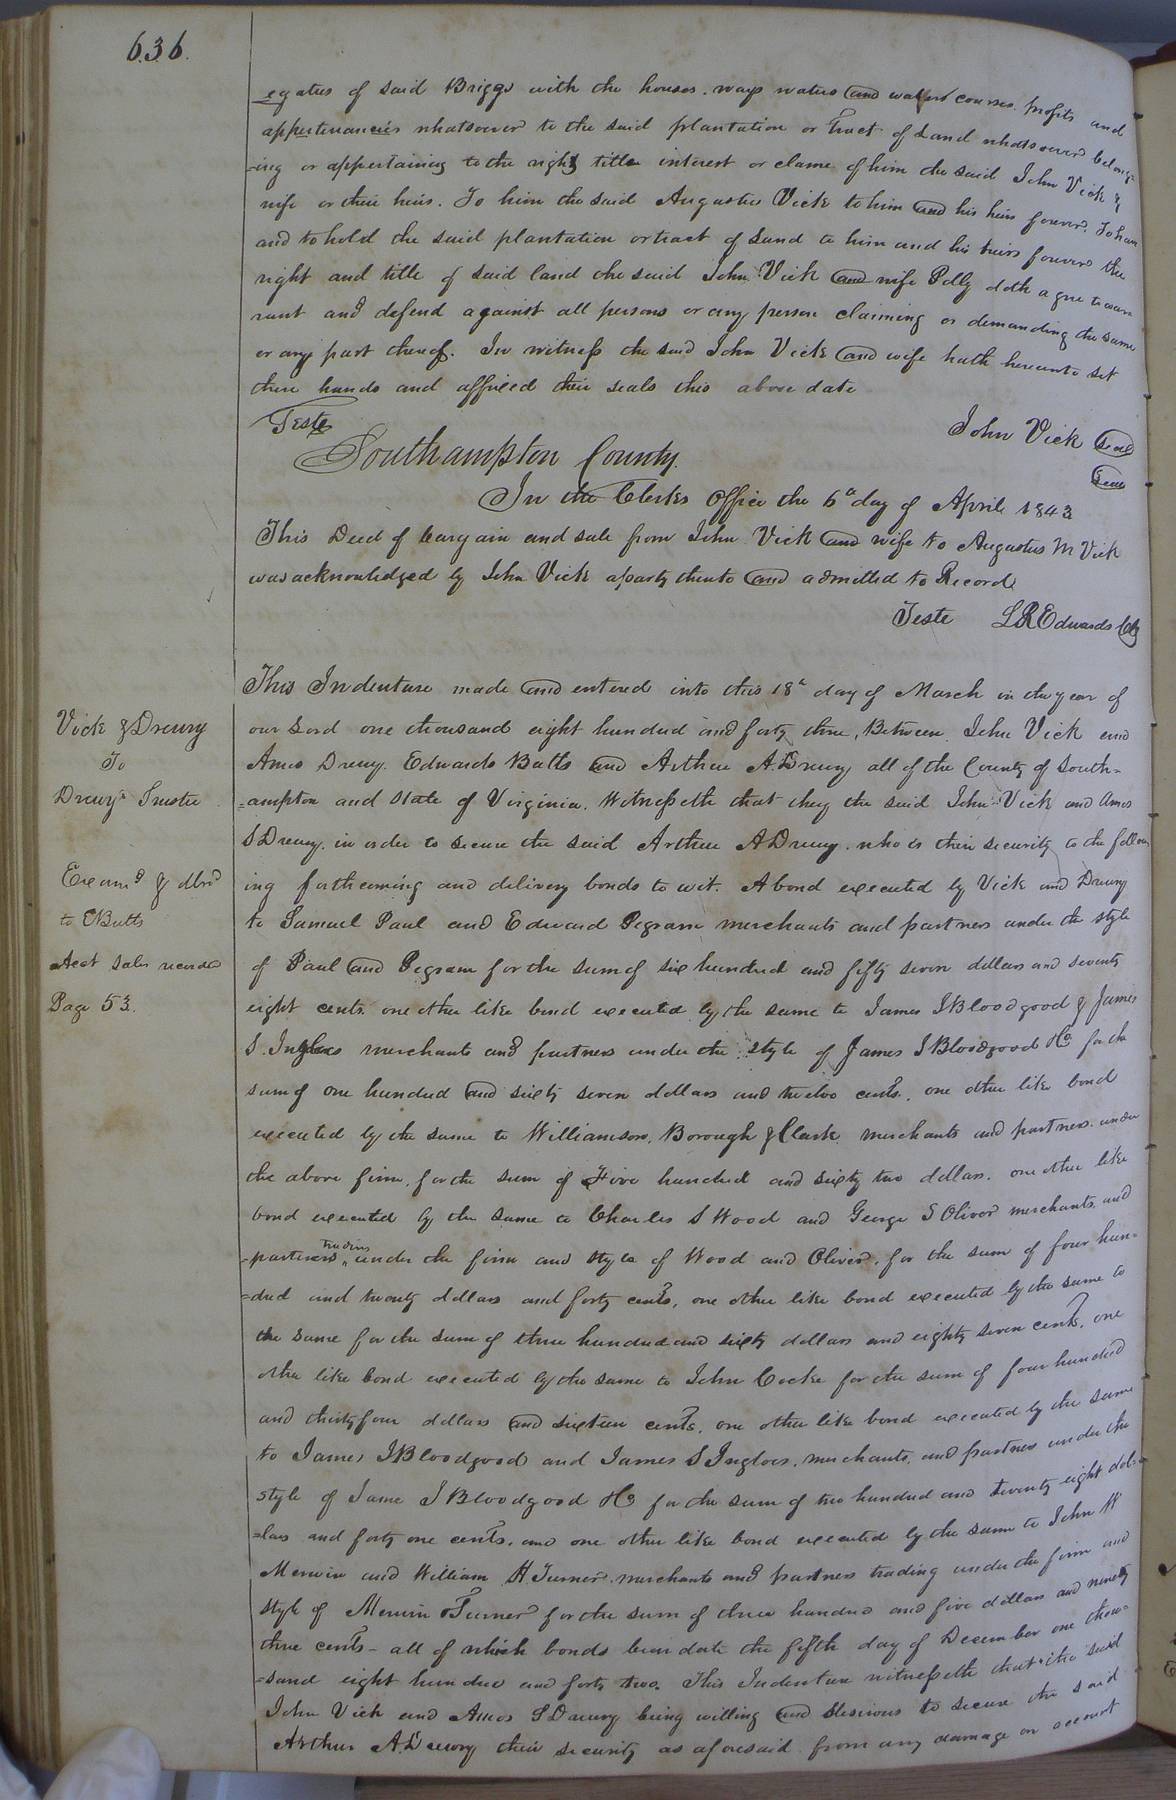 636.
egatees of said Briggs with the houses. ways waters and water courses. profits and
appertenancies whatsoever to the said plantation or Tract of Land whatsoever belong-
-ing or appertaining to the right title interest or clame of him the said John Vick &
wife or their heirs. To him the said Augustus Vick to him and his heirs forever. To have
and to hold the said plantation or tract of Land to him and his heirs forever the
right and title of said land the said John Vick and wife Polly doth agree to warr
rant and defend against all persons or any person claiming or demanding the same
or any part thereof. In witness the said John Vick and wife hath hereunto set
there hands and affixed their seals this above date
Teste
John Vick Seal
Seal
Southampton County.
In the Clerks Office the 6th day of April 1843
This Deed of bargain and sale from John Vick and wife to Augustus M Vick
was acknowledged by John Vick a party thereto and admitted to Record
Teste LREdwards Clk
Vick & Drewry
To
Drewrys Trustee
Examd & dlvd
to EButts
Acct Sales recorded
Page 53.
This Indenture made and entered into this 18th day of March in the year of
our Lord one thousand eight hundred and forty three, Between John Vick and
Amos Drewry. Edwards Butts and Arthur A. Drewry all of the County of South=
=ampton and State of Virginia. Witnesseth that they the said John Vick and Amos
S Drewry. in order to secure the said Arthur A Drewry. who is their security to the follow
ing forthcoming and delivery bonds to wit. A bond executed by Vick and Drewry
to Samuel Paul and Edward Pegram merchants and partners under the style
of Paul and Pegram for the sum of six hundred and fifty seven dollars and seventy
eight cents one other like bond executed by the same to James I Bloodgood & James
S. Ingloes merchants and partners under the style of James I Bloodgood & Co for the
sum of one hundred and sixty seven dollars and twelve cents, one other like bond
executed by the same to Williamson, Borough & Clark merchants and partners under
the above firm, for the sum of Five hundred and sixty two dollars. one other like
bond executed by the same to Charles S Wood and George S Oliver merchants and
=partners trading under the firm and style of Wood and Oliver, for the sum of four hun=
=dred and twenty dollars and forty cents, one other like bond executed by the same to
the same for the sum of three hundred and sixty dollars and eighty seven cents, one
other like bond executed by the same to John Cocke for the sum of four hundred
and thirty four dollars and sixteen cents, one other like bond executed by the same
to James I Bloodgood and James S Ingloes. merchants. and partners under the
style of Jame I Bloodgood & Co for the sum of two hundred and seventy eight dol=
=lars and forty one cents. and one other like bond executed by the same to John W
Merwin and William H Turner. merchants and partners trading under the firm and
style of Merwin & Turner for the sum of three hundred and five dollars and ninety
three cents - all of which bonds bear date the fifth day of December one thou=
=sand eight hundred and forty two. This Indenture witnesseth that the said
John Vick and Amos S Drewry being willing and desirious to secure the said
Arthur A. Drewry their security as aforesaid from any damage on account